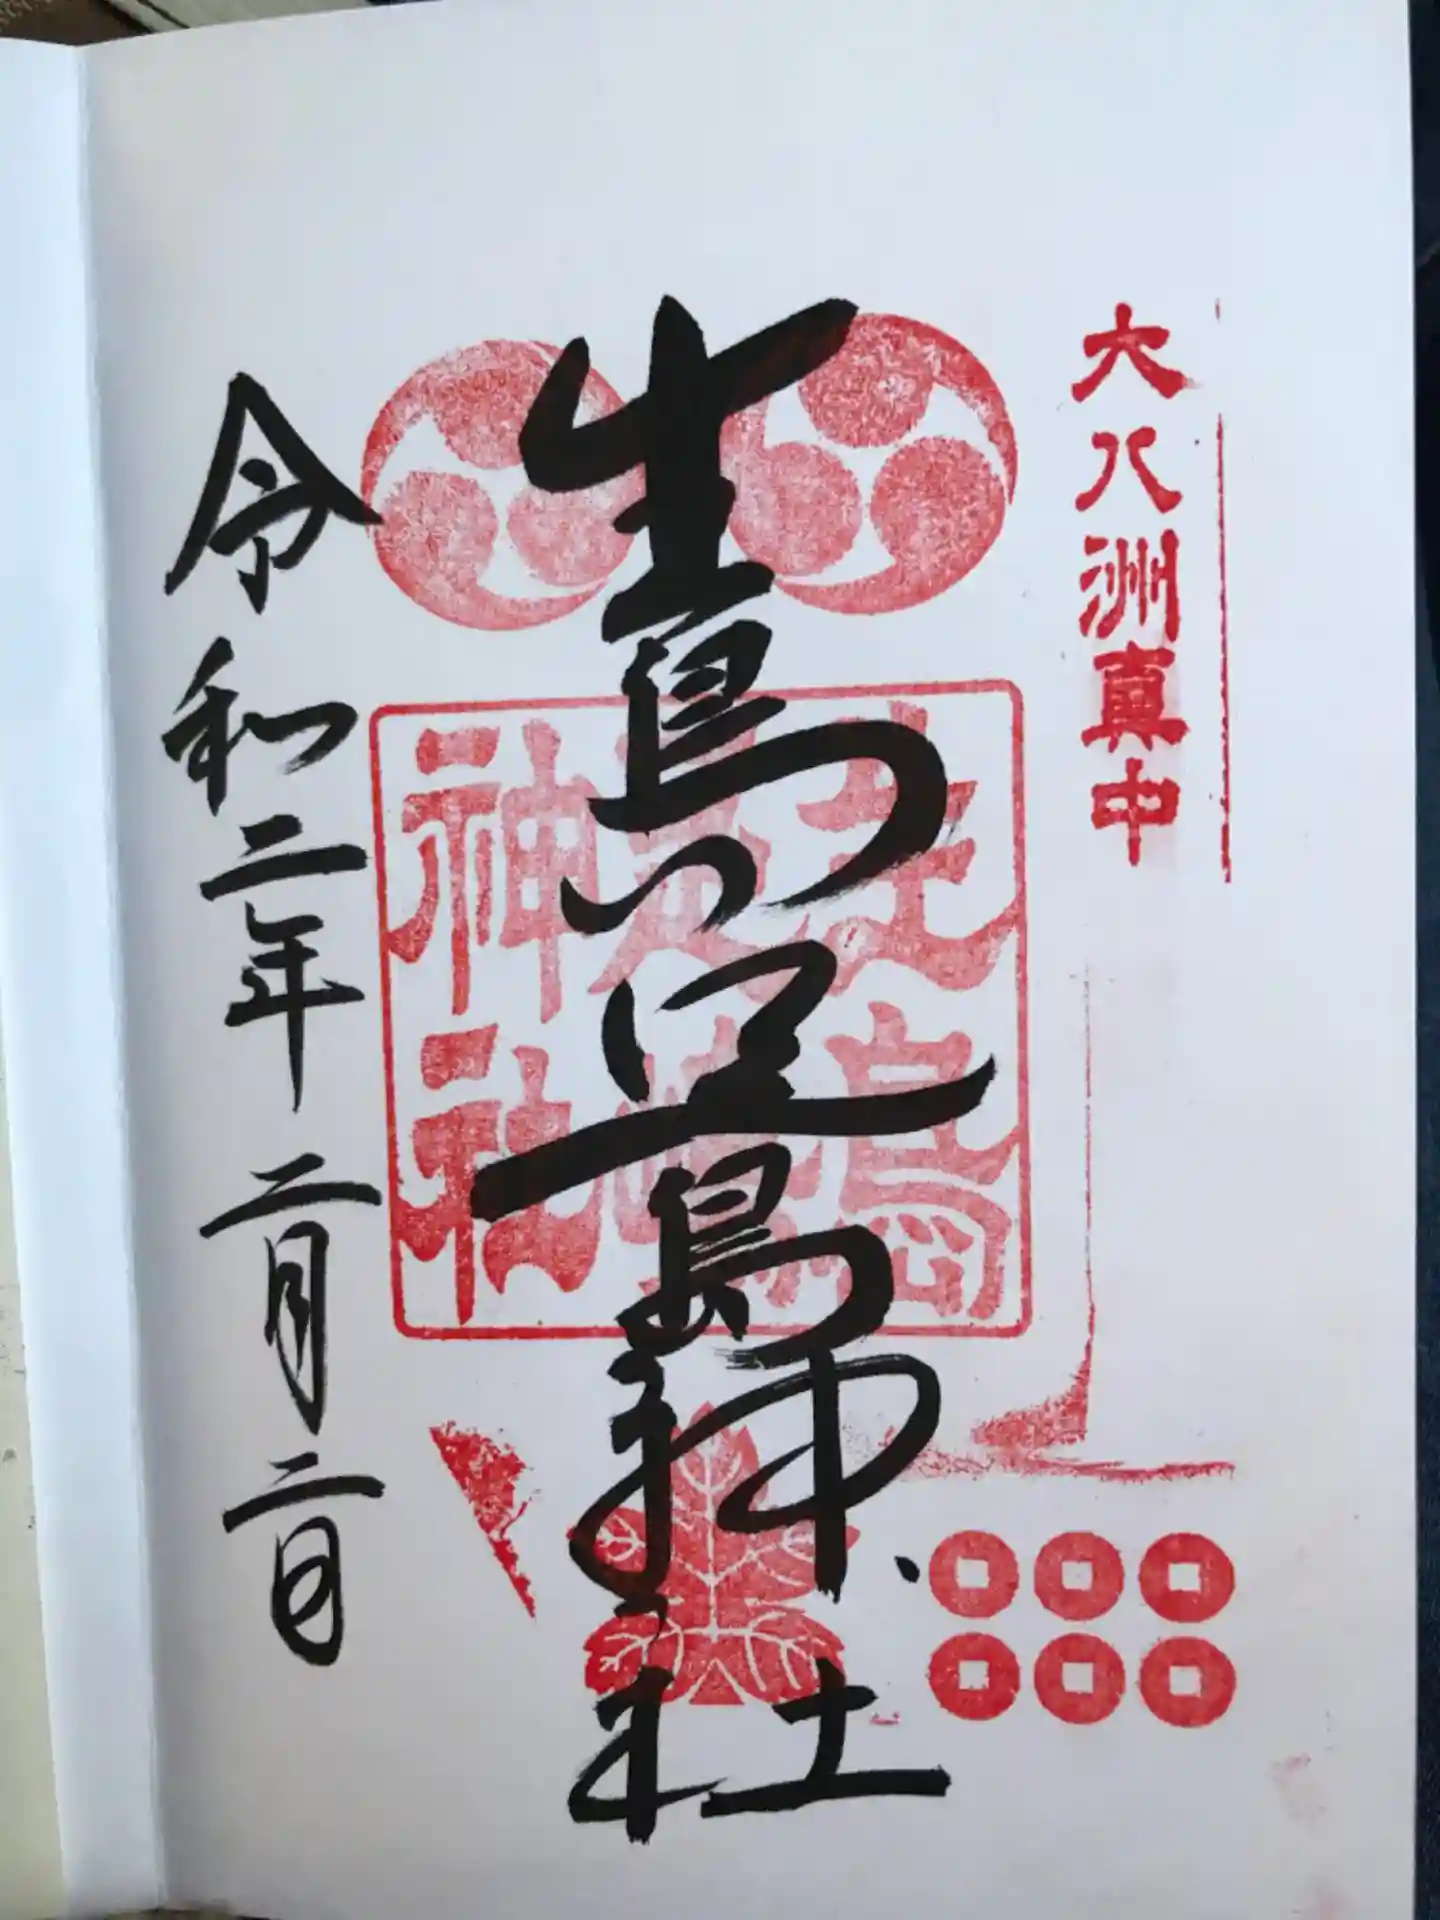 大八洲真中
生島足島神社
生島足島神社
令和二年二月二日